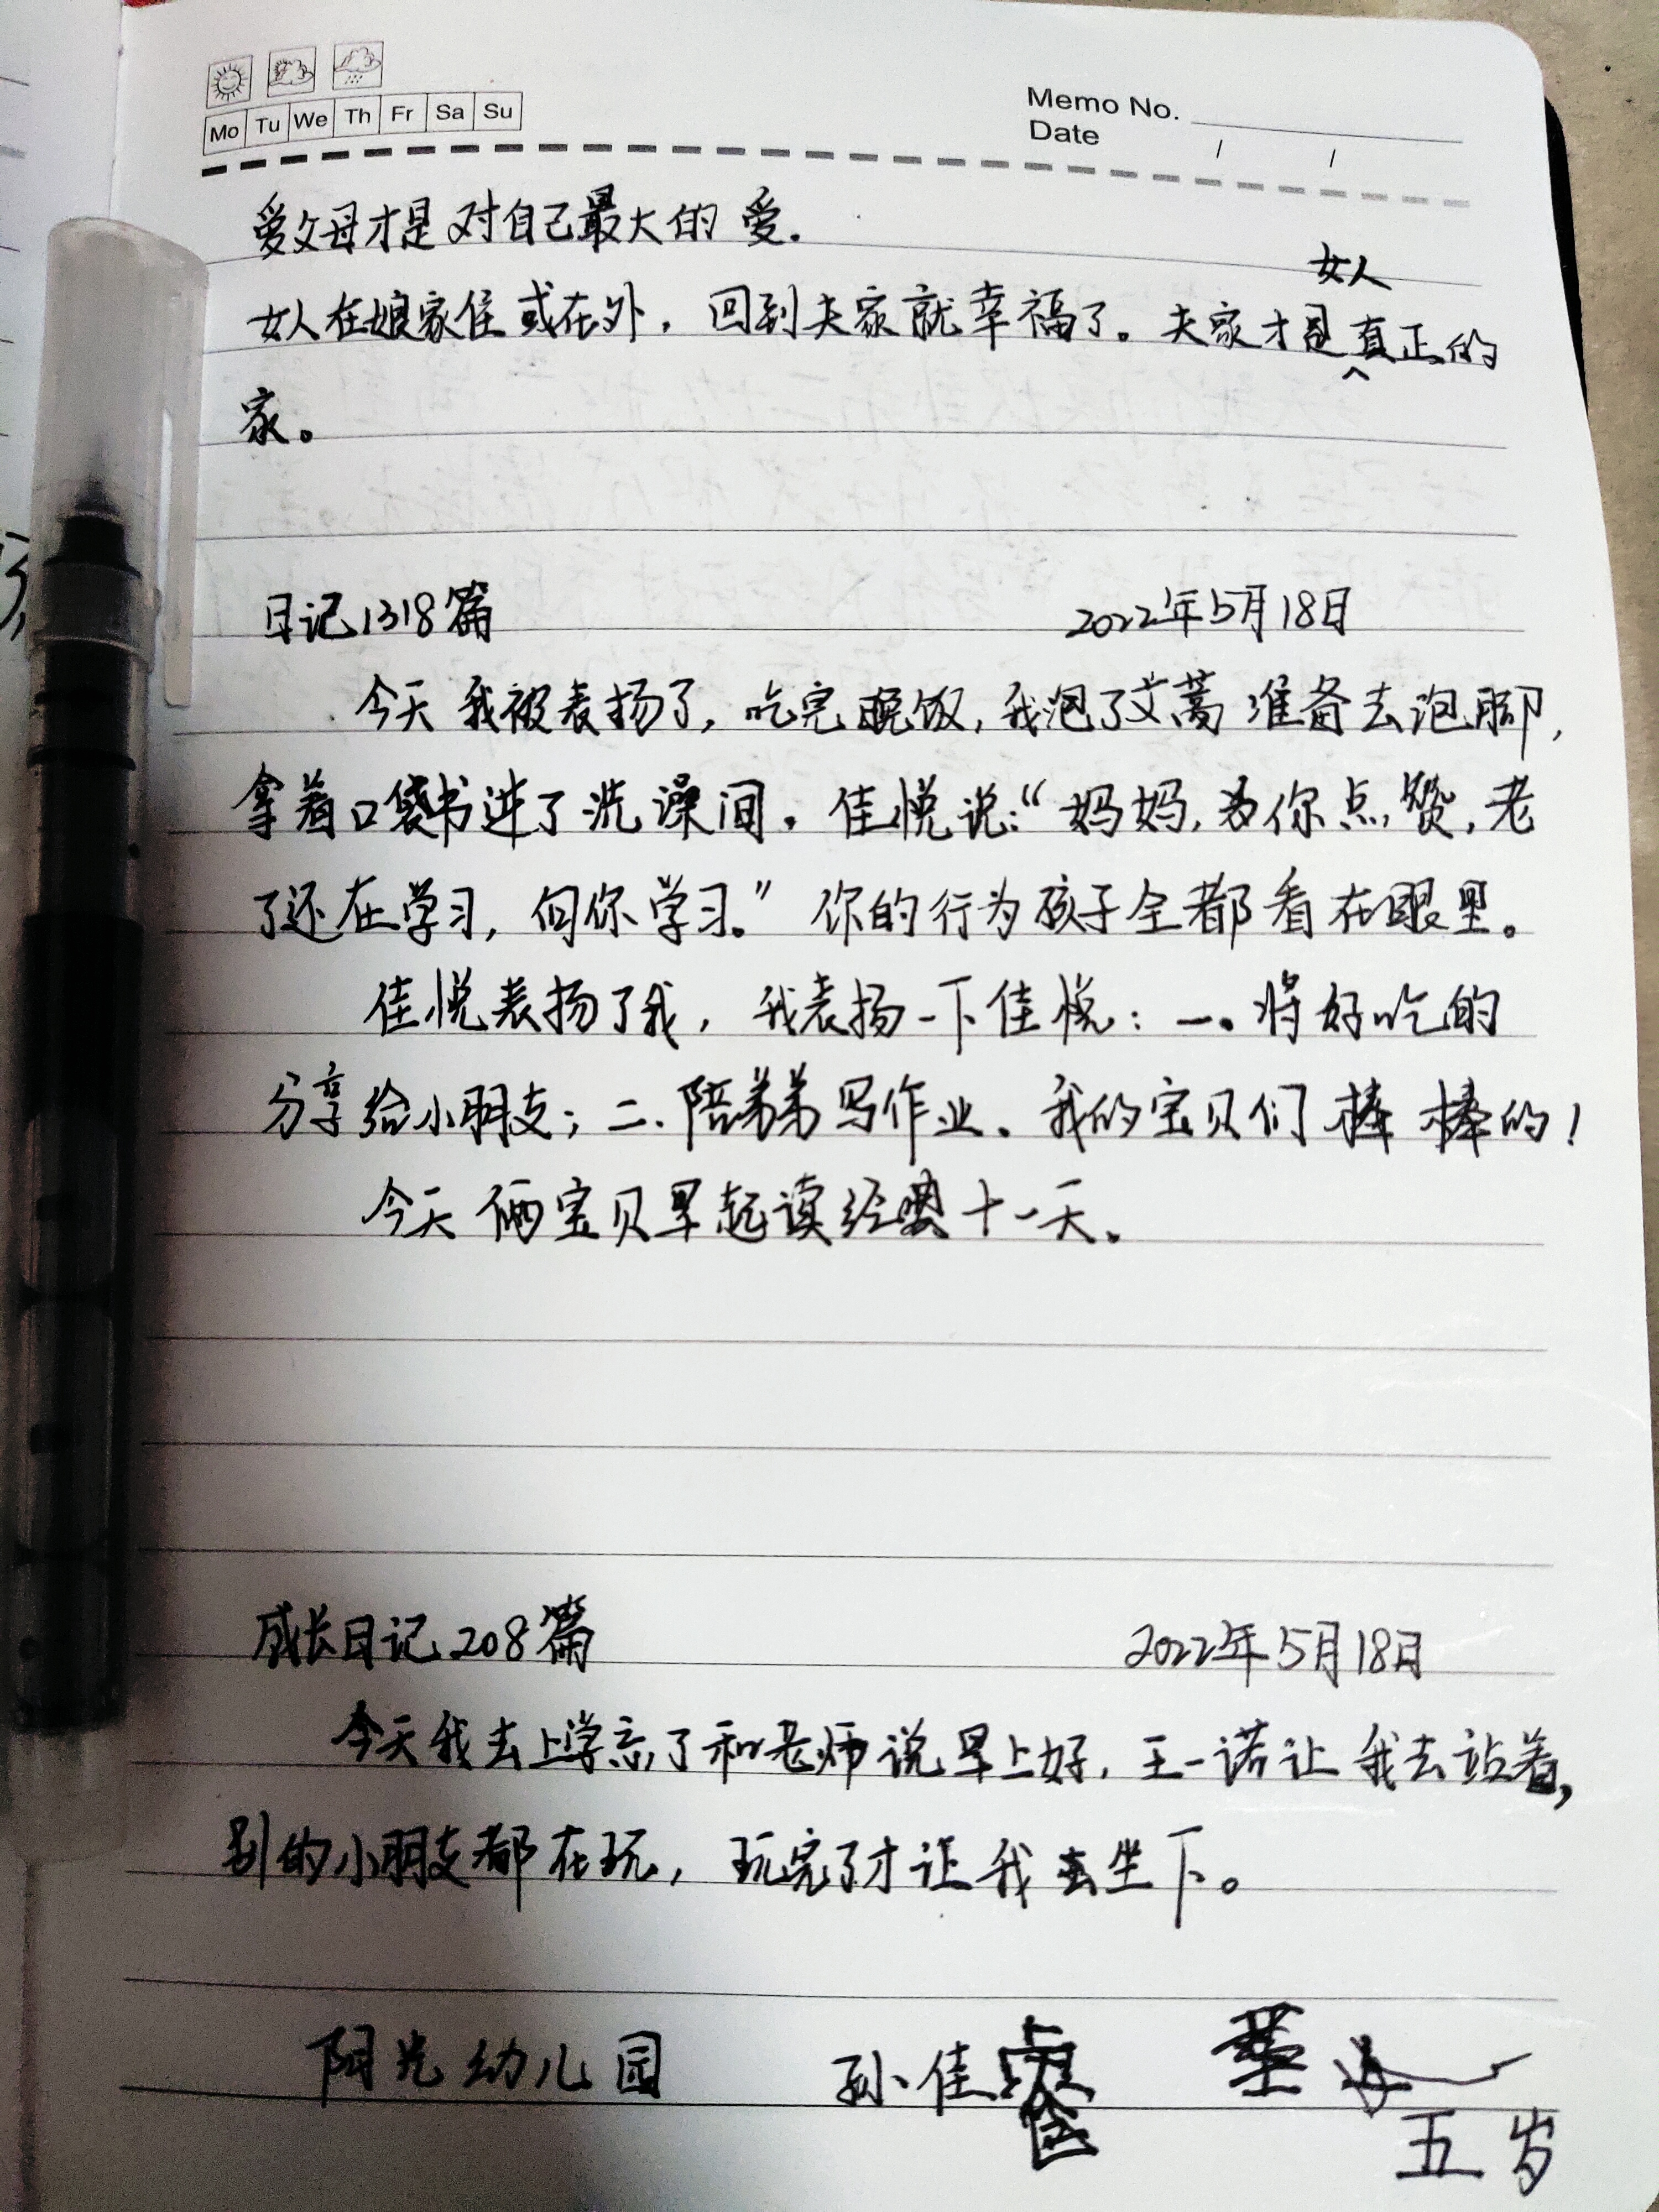 Mo Tu We Th Fr Sa Su
Memo No.
Date / /
爱父母才是对自己最大的爱.
女人在娘家住或在外，回到夫家就幸福了。夫家才是女人真正的
家。
日记1318篇 2022年5月18日
今天我被表扬了，吃完晚饭，我泡了艾蒿准备去泡脚，
拿着口袋书进了洗澡间。佳悦说:“妈妈，为你点赞，老
了还在学习，向你学习。”你的行为孩子全都看在眼里。
佳悦表扬了我，我表扬一下佳悦：一。将好吃的
分享给小朋友；二.陪弟弟写作业。我的宝贝们棒棒的！
今天俩宝贝早起读经典十一天。
成长日记208篇 2022年5月18日
今天我去上学忘了和老师说早上好，王一诺让我去站着，
别的小朋友都在玩，玩完了才让我去坐下。
阳光幼儿园 孙佳
五岁